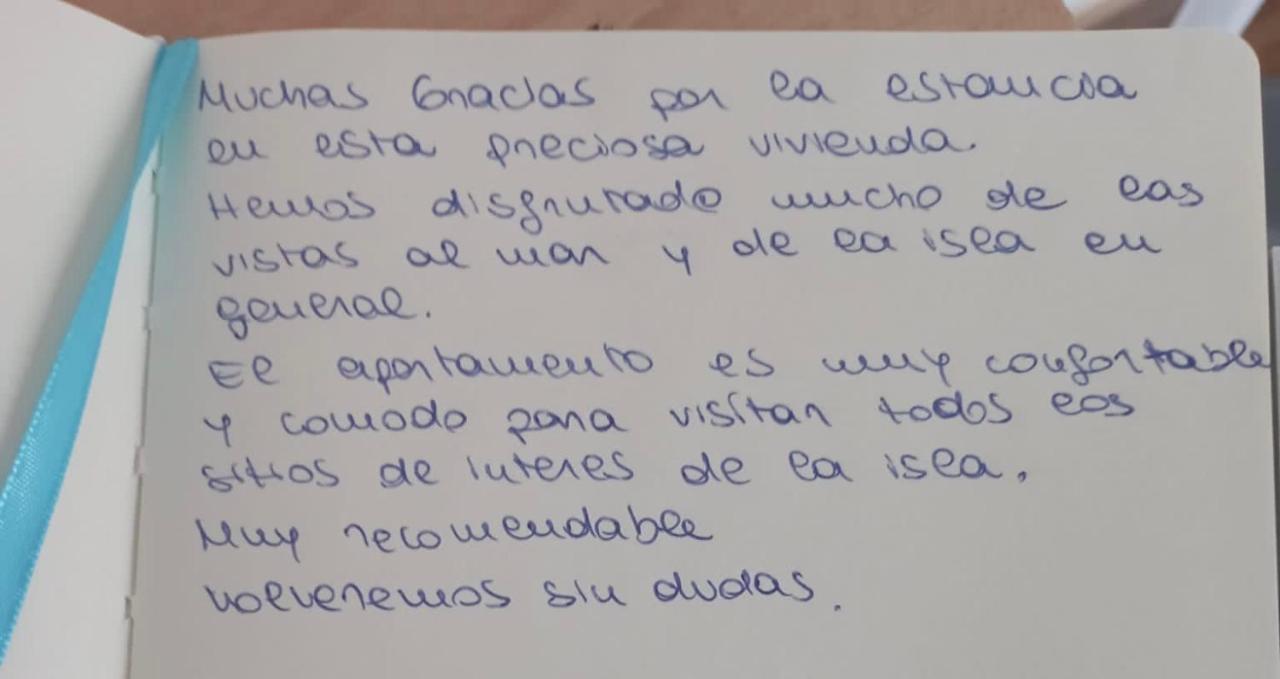 Muchas Gracias por la estancia
en esta preciosa vivienda.
Hemos disfrutado mucho de las
vistas al mar y de la isla en
general.
El apartamento es muy confortable
y comodo para visitar todos los
sitios de interes de la isla.
Muy recomendable
volveremos sin dudas.